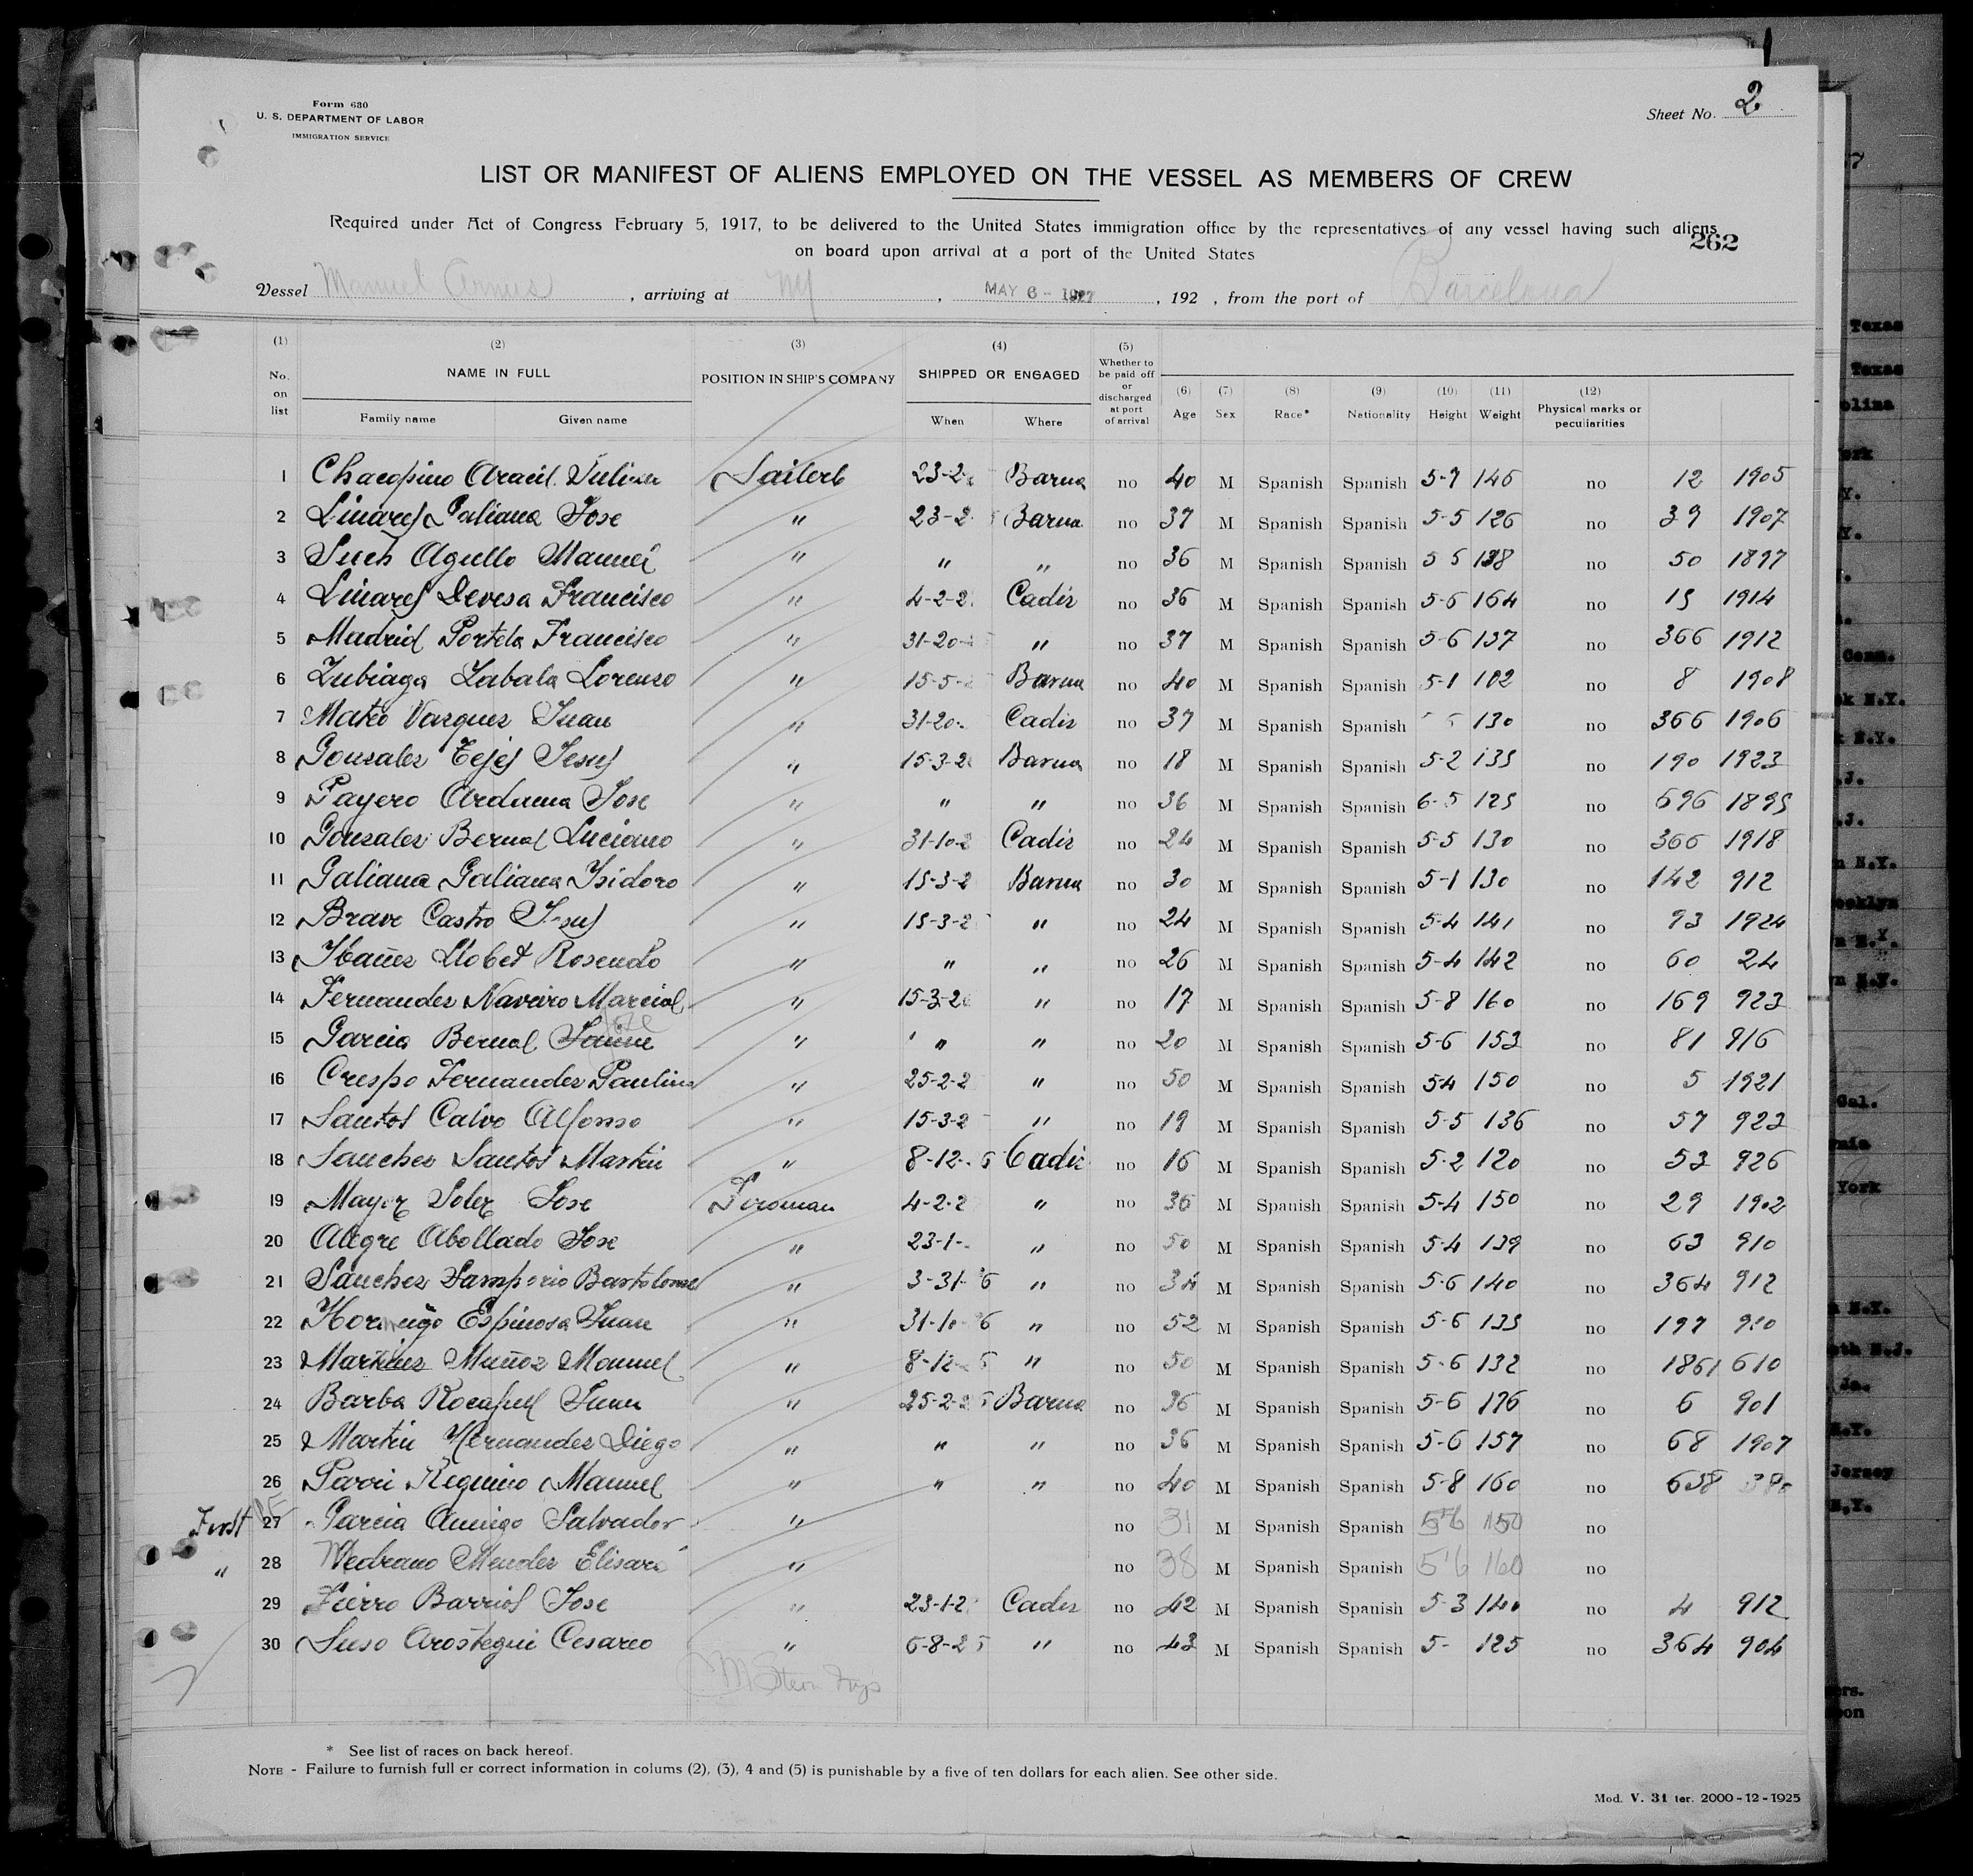 Form 630
U. S. DEPARTMENT OF LABOR
IMMIGRATION SERVICE
Sheet No. 2
LIST OR MANIFEST OF ALIENS EMPLOYED ON THE VESSEL AS MEMBERS OF CREW
Required under Act of Congress February 5, 1917, to be delivered to the United States immigration office by the representatives of any vessel having such aliens
on board upon arrival at a port of the United States
262
Vessel Manuel Arnus, arriving at NY, MAY 6 - 1927, 192 , from the port of Barcelona
(1) (2) (3) (4) (5)
No. on list NAME IN FULL POSITION IN SHIP'S COMPANY SHIPPED OR ENGAGED Whether to be paid off or discharged at port of arrival
(6) (7) (8) (9) (10) (11) (12)
Age Sex Race* Nationality Height Weight Physical marks or peculiarities
Family name Given name When Where
1 Chacopino Aracil Julian Sailerb 23-2- Barna no 40 M Spanish Spanish 5-7 145 no 12 1905
2 Linares Galiana Jose " 23-2 Barna no 37 M Spanish Spanish 5-5 126 no 39 1907
3 Such Agullo Manuel " " " no 36 M Spanish Spanish 5 5 138 no 50 1897
4 Linares Devesa Francisco " 4-2-2 Cadiz no 36 M Spanish Spanish 5-6 164 no 15 1914
5 Madrid Portela Francisco " 31-20- " no 37 M Spanish Spanish 5-6 137 no 366 1912
6 Zubiaga Zabala Lorenzo " 15-5- Barna no 40 M Spanish Spanish 5-1 102 no 8 1908
7 Mateo Vazquez Juan " 31-20- Cadiz no 37 M Spanish Spanish 130 no 366 1906
8 Gonzalez Tejes Jesus " 15-3-2 Barna no 18 M Spanish Spanish 5-2 135 no 190 1923
9 Payero Arduma Jose " " " no 36 M Spanish Spanish 6-5 125 no 696 1895
10 Gonzalez Bernal Luciano " 31-10-2 Cadiz no 24 M Spanish Spanish 5-5 130 no 366 1918
11 Galiana Galiana Isidoro " 15-3-2 Barna no 30 M Spanish Spanish 5-1 130 no 142 912
12 Bravo Castro Jesus " 15-3-2 " no 24 M Spanish Spanish 5-4 141 no 93 1924
13 Ibañez Llobet Rosendo " " " no 26 M Spanish Spanish 5-4 142 no 60 24
14 Fernandez Navarro Marcial " 15-3-2 " no 17 M Spanish Spanish 5-8 160 no 169 923
15 Garcia Bernal Jose " " " no 20 M Spanish Spanish 5-6 153 no 81 916
16 Crespo Fernandez Paulino " 25-2-2 " no 50 M Spanish Spanish 5-4 150 no 5 1921
17 Santos Calvo Alfonso " 15-3-2 " no 19 M Spanish Spanish 5-5 136 no 57 923
18 Sanchez Santos Martin " 8-12- 6 Cadiz no 16 M Spanish Spanish 5-2 120 no 53 926
19 Mayor Soler Jose Fireman 4-2-2 " no 36 M Spanish Spanish 5-4 150 no 29 1902
20 Alegre Abollado Jose " 23-1- " no 50 M Spanish Spanish 5-4 139 no 63 910
21 Sanchez Samperio Bartolome " 3-31- 6 " no 34 M Spanish Spanish 5-6 140 no 364 912
22 Espinosa Juan " 31-10 6 " no 52 M Spanish Spanish 5-6 135 no 197 910
23 Martinez Muñoz Manuel " 8-12- 6 " no 50 M Spanish Spanish 5-6 132 no 1861 610
24 Barba Rocafull Juan " 25-2-2 Barna no 36 M Spanish Spanish 5-6 176 no 6 901
25 Martin Hernandez Diego " " " no 36 M Spanish Spanish 5-6 157 no 68 1907
26 Manuel " " " no 40 M Spanish Spanish 5-8 160 no 638
First 27 Garcia Amigo Salvador " no 31 M Spanish Spanish 5'6 150 no
" 28 Medrano Mendez " no 38 M Spanish Spanish 5'6 160 no
29 Fierro Barrios Jose " 23-1-2 Cadiz no 42 M Spanish Spanish 5-3 140 no 4 912
30 Suso Arostegui Cesareo " 6-8-2 " no 43 M Spanish Spanish 5- 125 no 364 904
* See list of races on back hereof.
NOTE - Failure to furnish full or correct information in colums (2), (3), 4 and (5) is punishable by a five of ten dollars for each alien. See other side.
Mod. V. 31 ter. 2000-12-1925